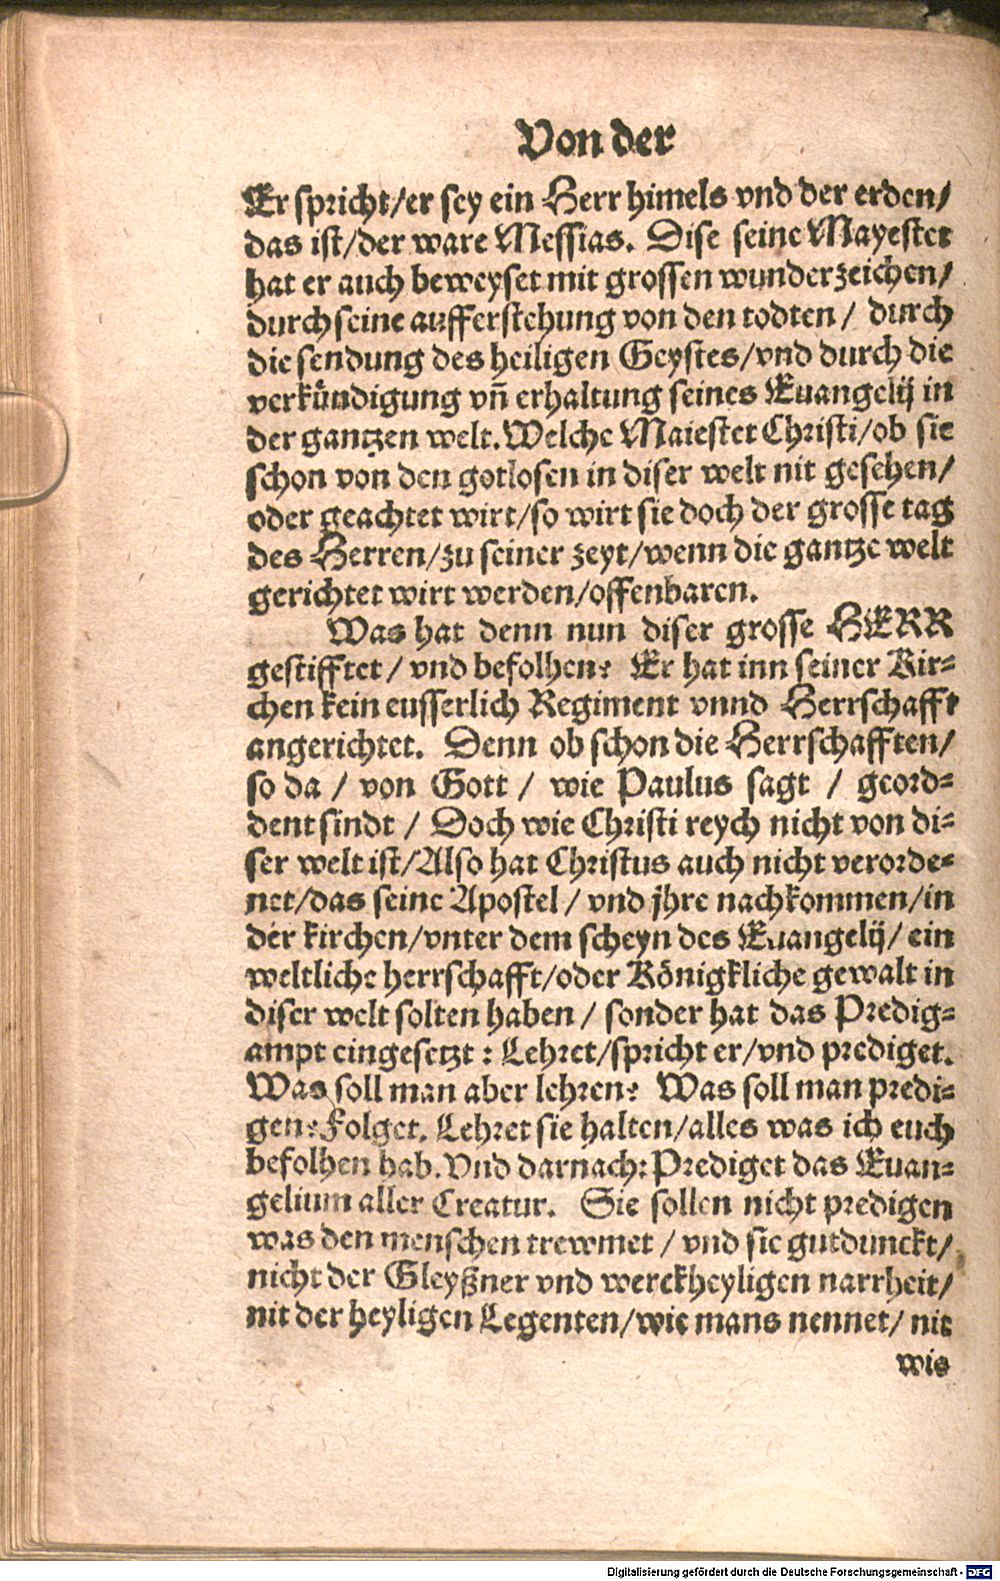 Von der
Er spricht/er sey ein Herr himels vnd der erden/
das ist/der ware Messias. Dise seine Mayestet
hat er auch beweyset mit grossen wunderzeichen/
durch seine aufferstehung von den todten / durch
die sendung des heiligen Geystes/vnd durch die
verkündigung vñ erhaltung seines Euangelij in
der gantzen welt. Welche Maiestet Christi/ob sie
schon von den gotlosen in diser welt nit gesehen/
oder geachtet wirt/so wirt sie doch der grosse tag
des Herren/zu seiner zeyt/wenn die gantze welt
gerichtet wirt werden/offenbaren.
Was hat denn nun diser grosse HERR
gestifftet / vnd befolhen? Er hat inn seiner Kir-
chen kein eusserlich Regiment vnnd Herrschafft
angerichtet. Denn ob schon die Herrschafften/
so da / von Gott / wie Paulus sagt / geord-
dent sindt / Doch wie Christi reych nicht von di-
ser welt ist/Also hat Christus auch nicht verorde-
net/das seine Apostel / vnd jhre nachkommen/in
der kirchen/vnter dem scheyn des Euangelij/ ein
weltliche herrschafft/oder Königkliche gewalt in
diser welt solten haben / sonder hat das Predig-
ampt eingesetzt : Lehret/spricht er/vnd prediget.
Was soll man aber lehren? Was soll man predi-
gen? Folget. Lehret sie halten/alles was ich euch
befolhen hab. Vnd darnach: Prediget das Euan-
gelium aller Creatur. Sie sollen nicht predigen
was den menschen trewmet / vnd sie gutdunckt/
nicht der Gleyßner vnd werckheyligen narrheit/
nit der heyligen Legenten/wie mans nennet/ nit
wis
Digitalisierung gefördert durch die Deutsche Forschungsgemeinschaft - DFG